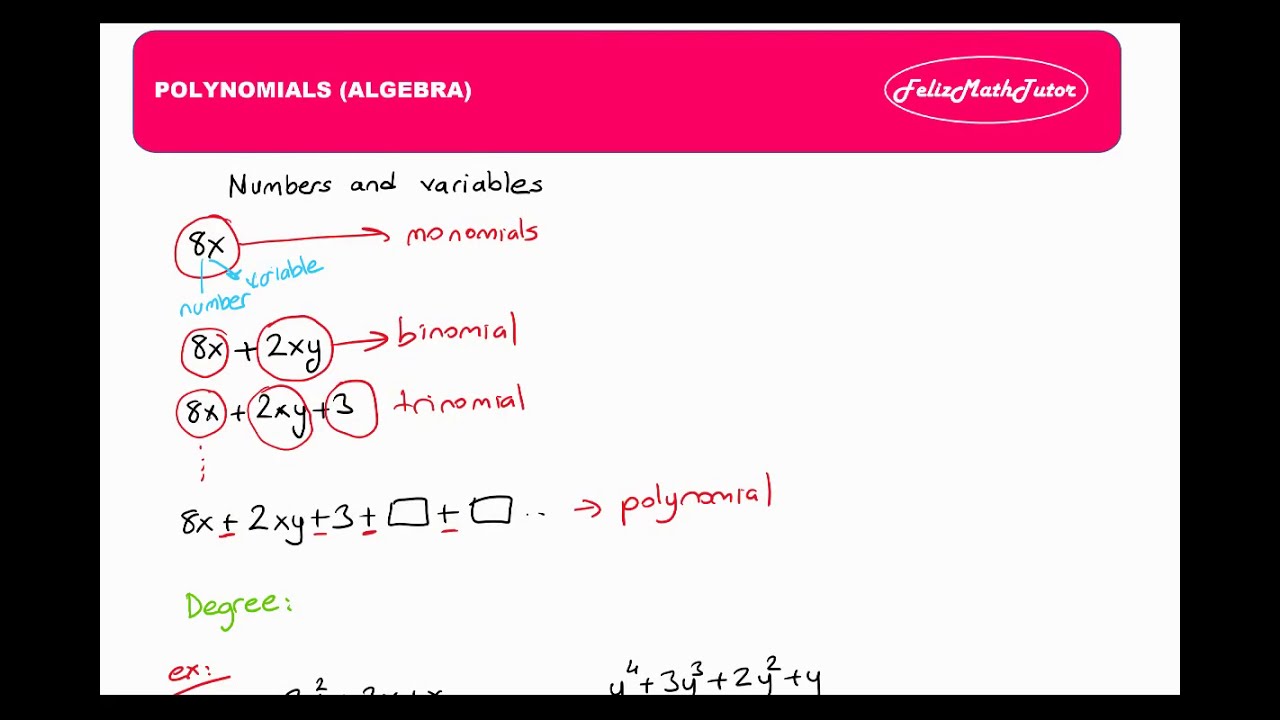 POLYNOMIALS (ALGEBRA)
FelizMathTutor
Numbers and variables
8x → monomials
variable
number
8x + 2xy → binomial
8x + 2xy + 3 trinomial
8x + 2xy + 3 + □ + □ .. → polynomial
Degree:
ex:
y⁴ + 3y³ + 2y² + y